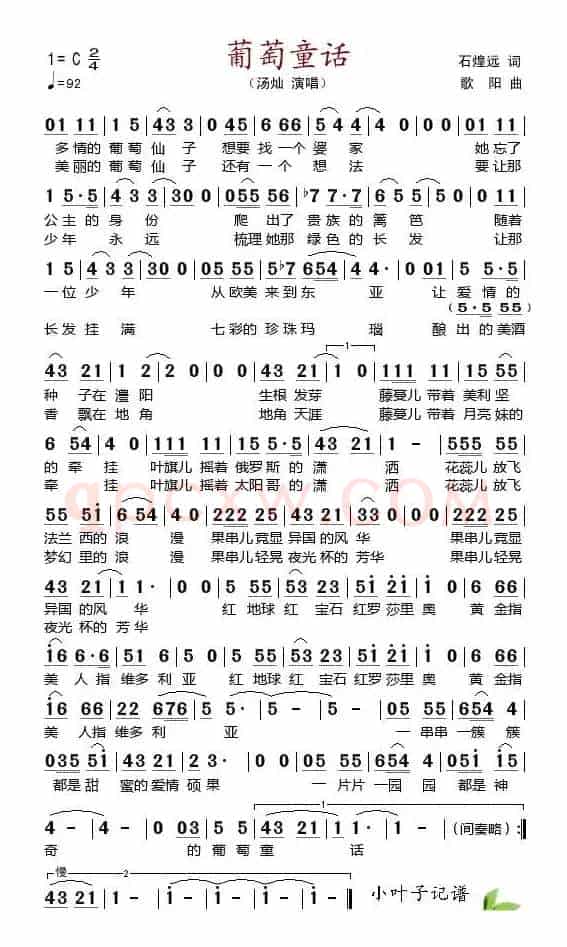 葡萄童话
1=C 2/4
♩=92
（汤灿 演唱）
石煌远 词
歌 阳 曲
01 11 | 1 5 | 43 3 | 03 45 | 6 66 | 5 4 4 | 4 0 | 0 0 | 01 11 |
多情的葡萄仙子 想要找一个婆家 她忘了
美丽的葡萄仙子 还有一个想法 要让那
1 5·5 | 5 4 3 3 | 30 0 | 055 56 | ♭7 7·7 | 6 5 5 | 5 0 | 01 11 |
公主的身份 爬出了贵族的篱笆 随着
少年永远 梳理她那绿色的长发 让那
1 5 | 4 33 | 30 0 | 05 55 | 5♭7 654 | 4 4· | 0 01 | 5·5 5 |
一位少年 从欧美来到东亚 让爱情的
(5·5 55)
长发挂满 七彩的珍珠玛瑙 酿出的美酒
43 21 | 1 2 | 2 0 | 05 55 | 43 21 | 1 0 | 111 11 | 15 55 |
种子在澧阳 生根发芽 藤蔓儿带着美利坚
香飘在地角 地角天涯 藤蔓儿带着月亮妹的
6 54 | 4 0 | 111 11 | 15 5·5 | 43 21 | 1 - | 555 55 |
的牵挂 叶旗儿摇着俄罗斯的潇洒 花蕊儿放飞
牵挂 叶旗儿摇着太阳哥的潇洒 花蕊儿放飞
qpcxw.COM
55 5i | 6 54 | 4 0 | 222 25 | 55 5 | 43 21 | 33 0 | 0 0 | 222 25 |
法兰西的浪漫 果串儿竞显异国的风华 果串儿竞显
梦幻里的浪漫 果串儿轻晃夜光杯的芳华 果串儿轻晃
43 21 | 1 1· | 0 0 | 0 5 | 53 55 | 03 23 | 5i i | 0 6 | 6 66 |
异国的风华 红地球红宝石红罗莎里奥 黄金指
夜光杯的芳华
i6 6·6 | 55 5i | 5 5 | 0 5 | 53 55 | 03 23 | 5i i | 0 6 | 6 66 |
美人指维多利亚 红地球红宝石红罗莎里奥 黄金指
美人指维多利亚 一串串一簇簇
都是甜蜜的爱情硕果 一片片一园园都是神
4 - | 4 - | 0 03 | 5 55 | 43 21 | 1 - | 1 - | (间奏略) :‖
奇的葡萄童话
慢
43 21 | 1 - | i - | i - | i - | i - ‖
小叶子记谱